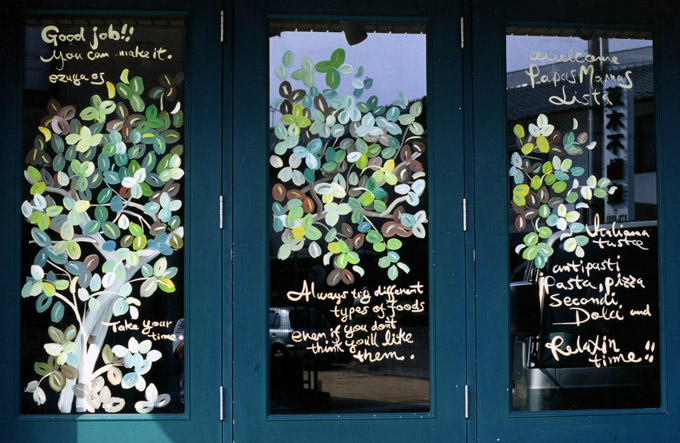 Good job!!
You can make it.
Take your
time.
Always try different
types of foods
even if you don't
think you'll like
them.
welcome
Papas Mamas
Lista
Italiana
antipasti
Pasta, pizza
Secondi
Dolci and
Relaxin
time!!